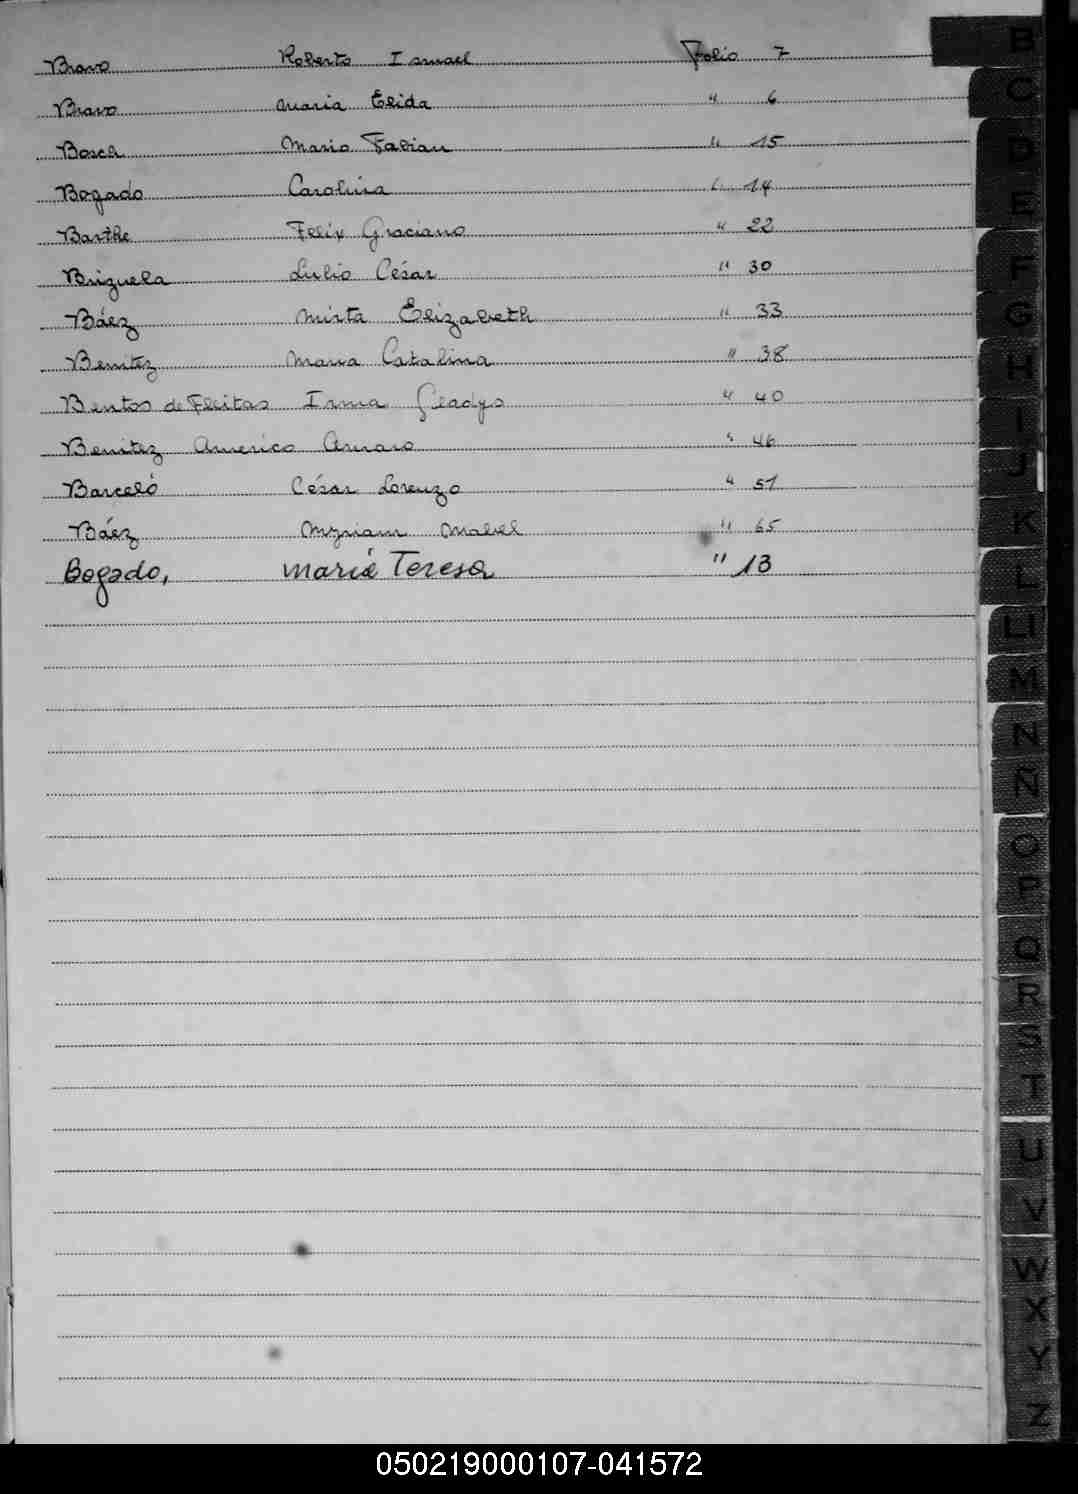 Bravo Roberto Ismael Folio 7
Bravo Maria Elida " 6
Bosch Mario Fabian " 15
Bogado Carolina " 14
Barthe Felix Graciano " 22
Brizuela Julio César " 30
Báez Mirta Elizabeth " 33
Benitez Maria Catalina " 38
Bentos de Fleitas Irma Gladys " 40
Benitez Americo Amaro " 46
Barceló César Lorenzo " 51
Báez Myriam Mabel " 65
Bogado, María Teresa " 13
B
C
D
E
F
G
H
I
J
K
L
Ll
M
N
Ñ
O
P
Q
R
S
T
U
V
W
X
Y
Z
050219000107-041572